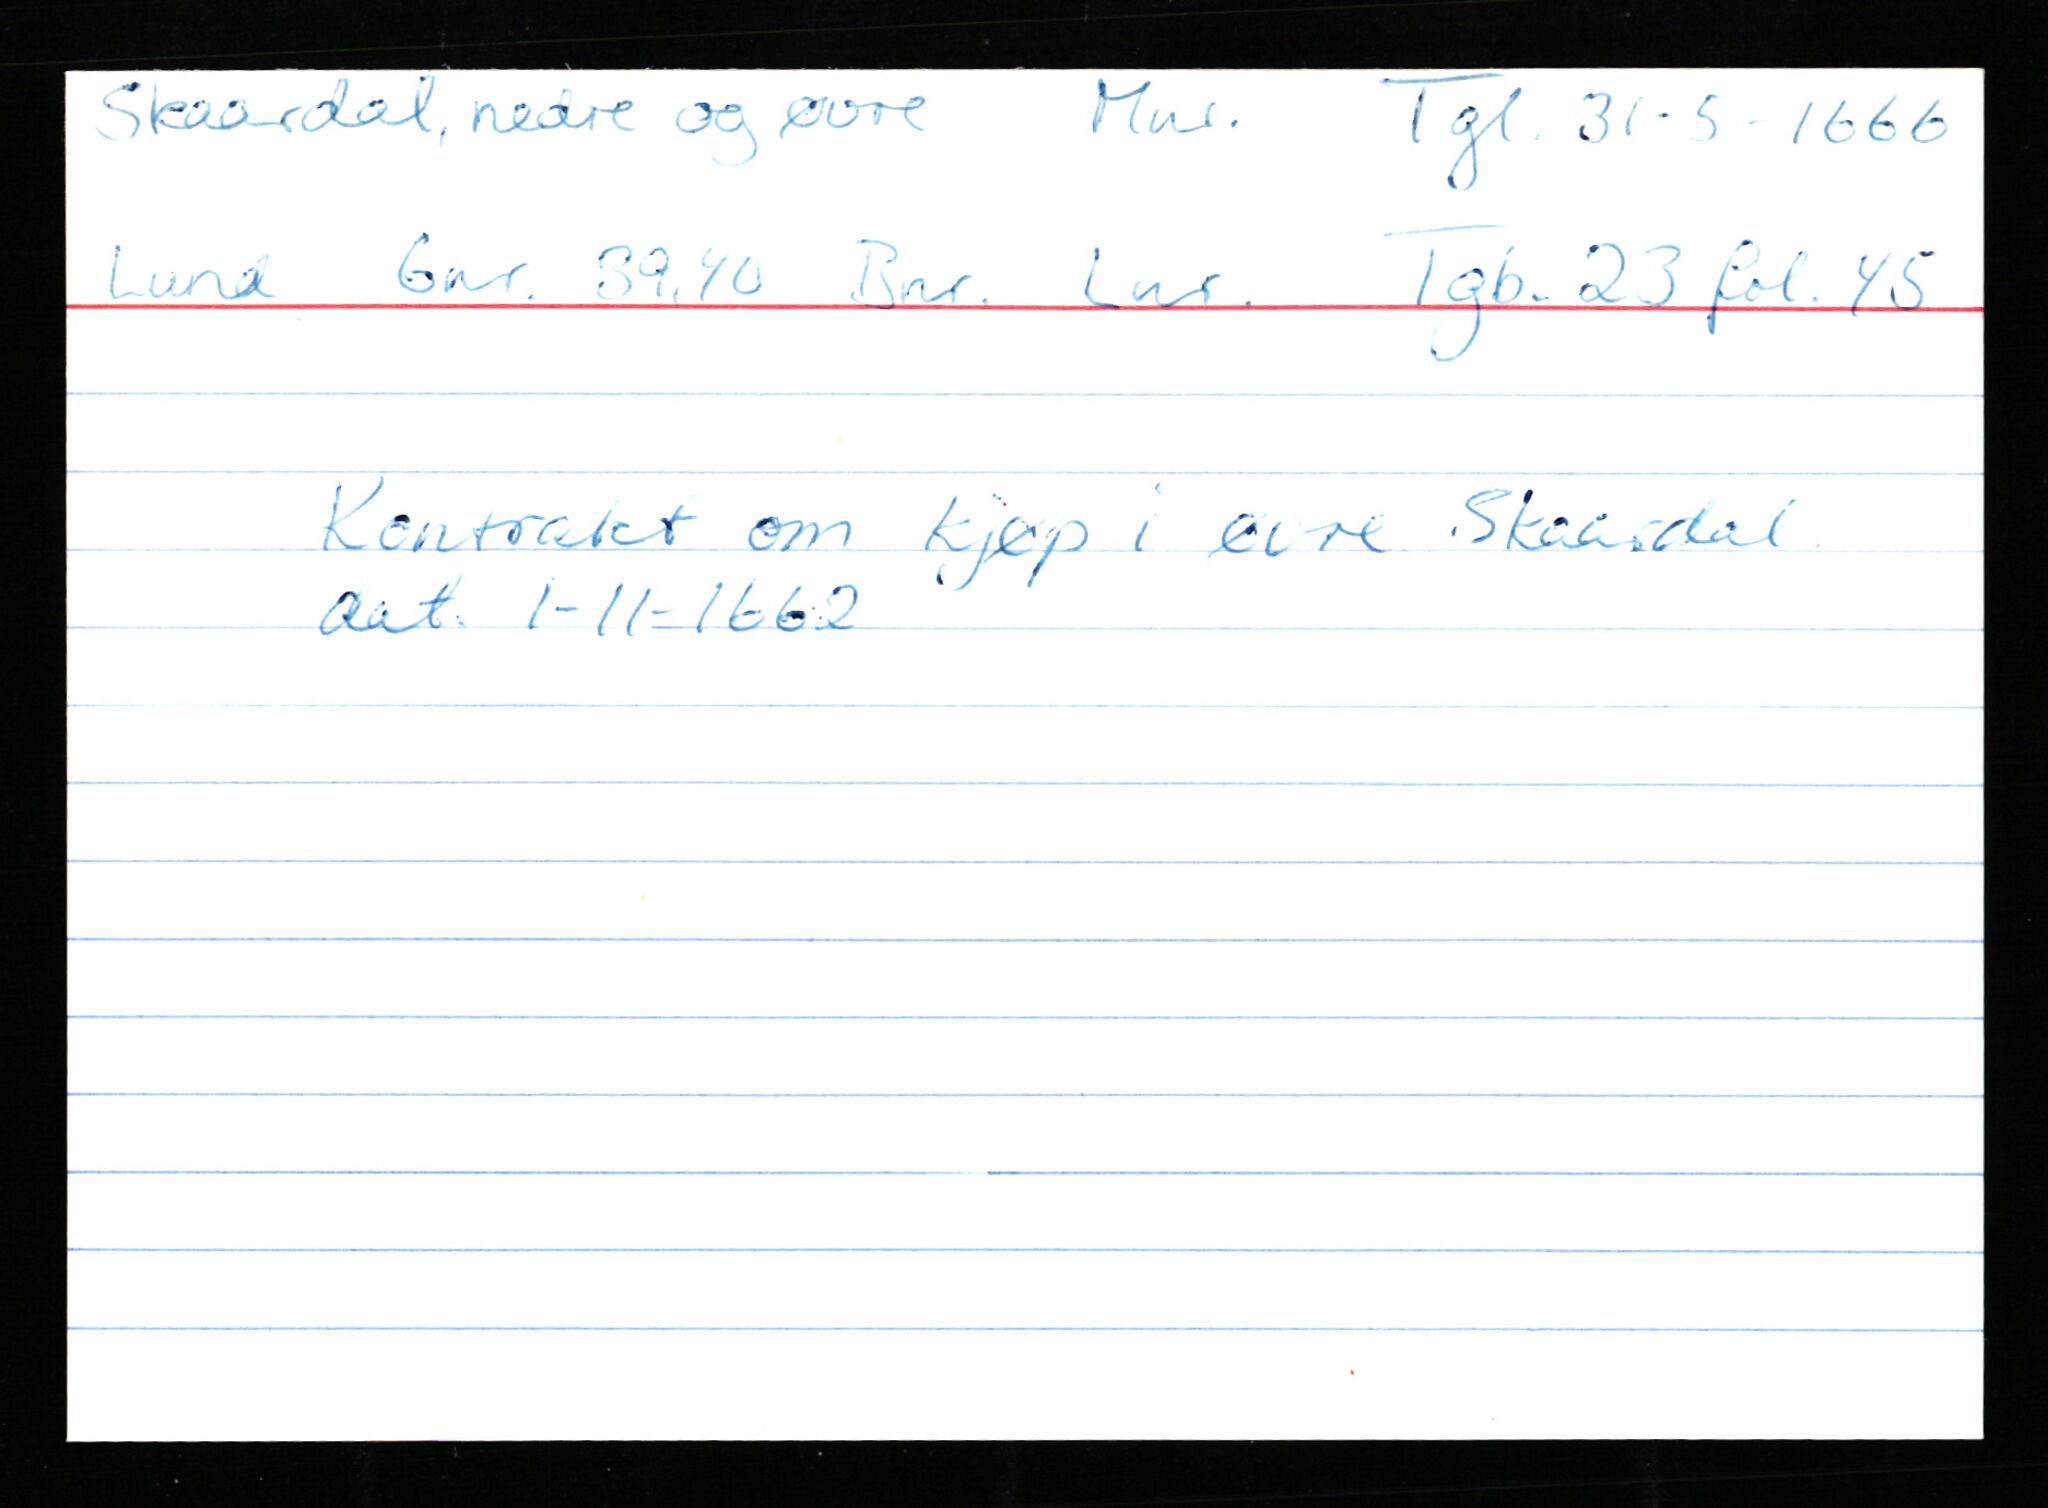 Skaardal, nedre og øvre Mnr. Tgl. 31-5-1666
Lund Gnr. 39,40 Bnr. Lnr. Tgb. 23 fol. 45
Kontrakt om kjøp i øvre Skaardal
dat. 1-11-1662